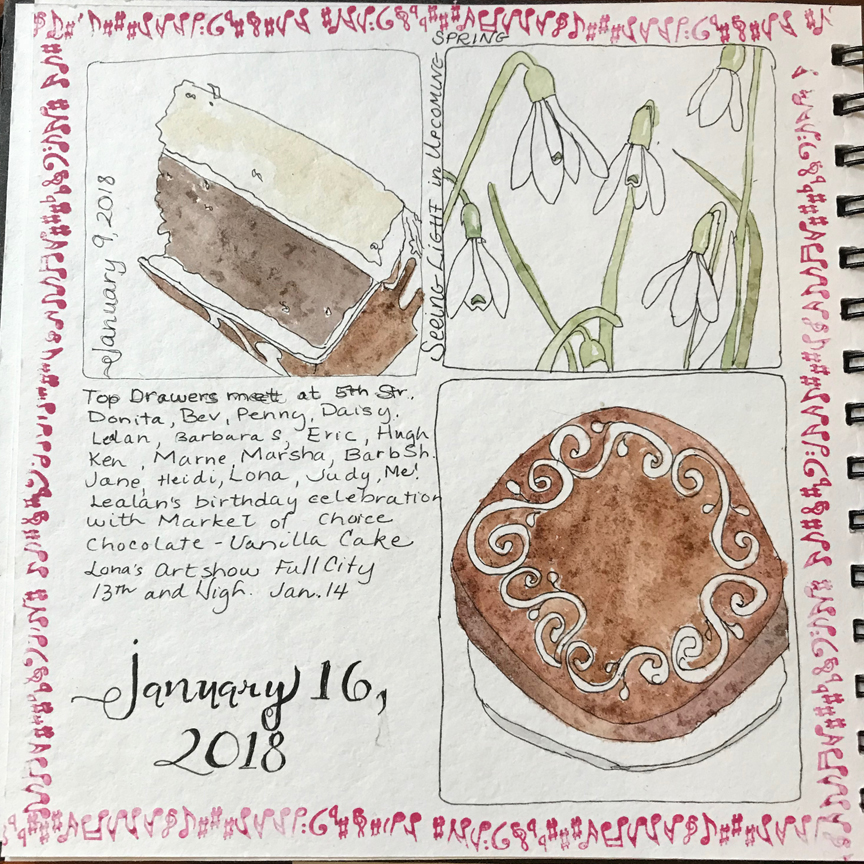 SPRING
Seeing LIGHT in UPCOMING
January 9, 2018
Top Drawers meet at 5th Str.
Donita, Bev, Penny, Daisy.
Lelan, Barbara S, Eric, Hugh
Ken, Marne, Marsha, Barb Sh.
Jane, Heidi, Lona, Judy, Me!
Lealan's birthday celebration
with Market of Choice
Chocolate - Vanilla Cake
Lona's Art show Full City
13th and High. Jan. 14
January 16,
2018